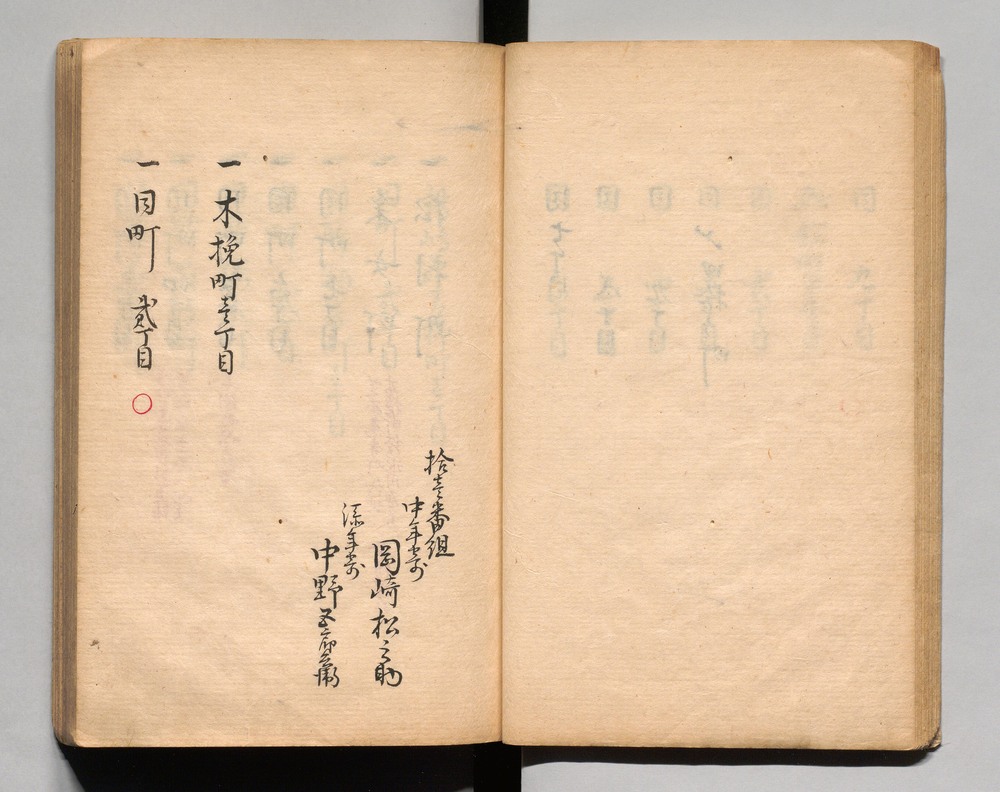 拾壱番組
中年寄
岡崎松之助
添年寄
中野五郎兵衛
一 木挽町壱丁目
一 同町 弐丁目 ○